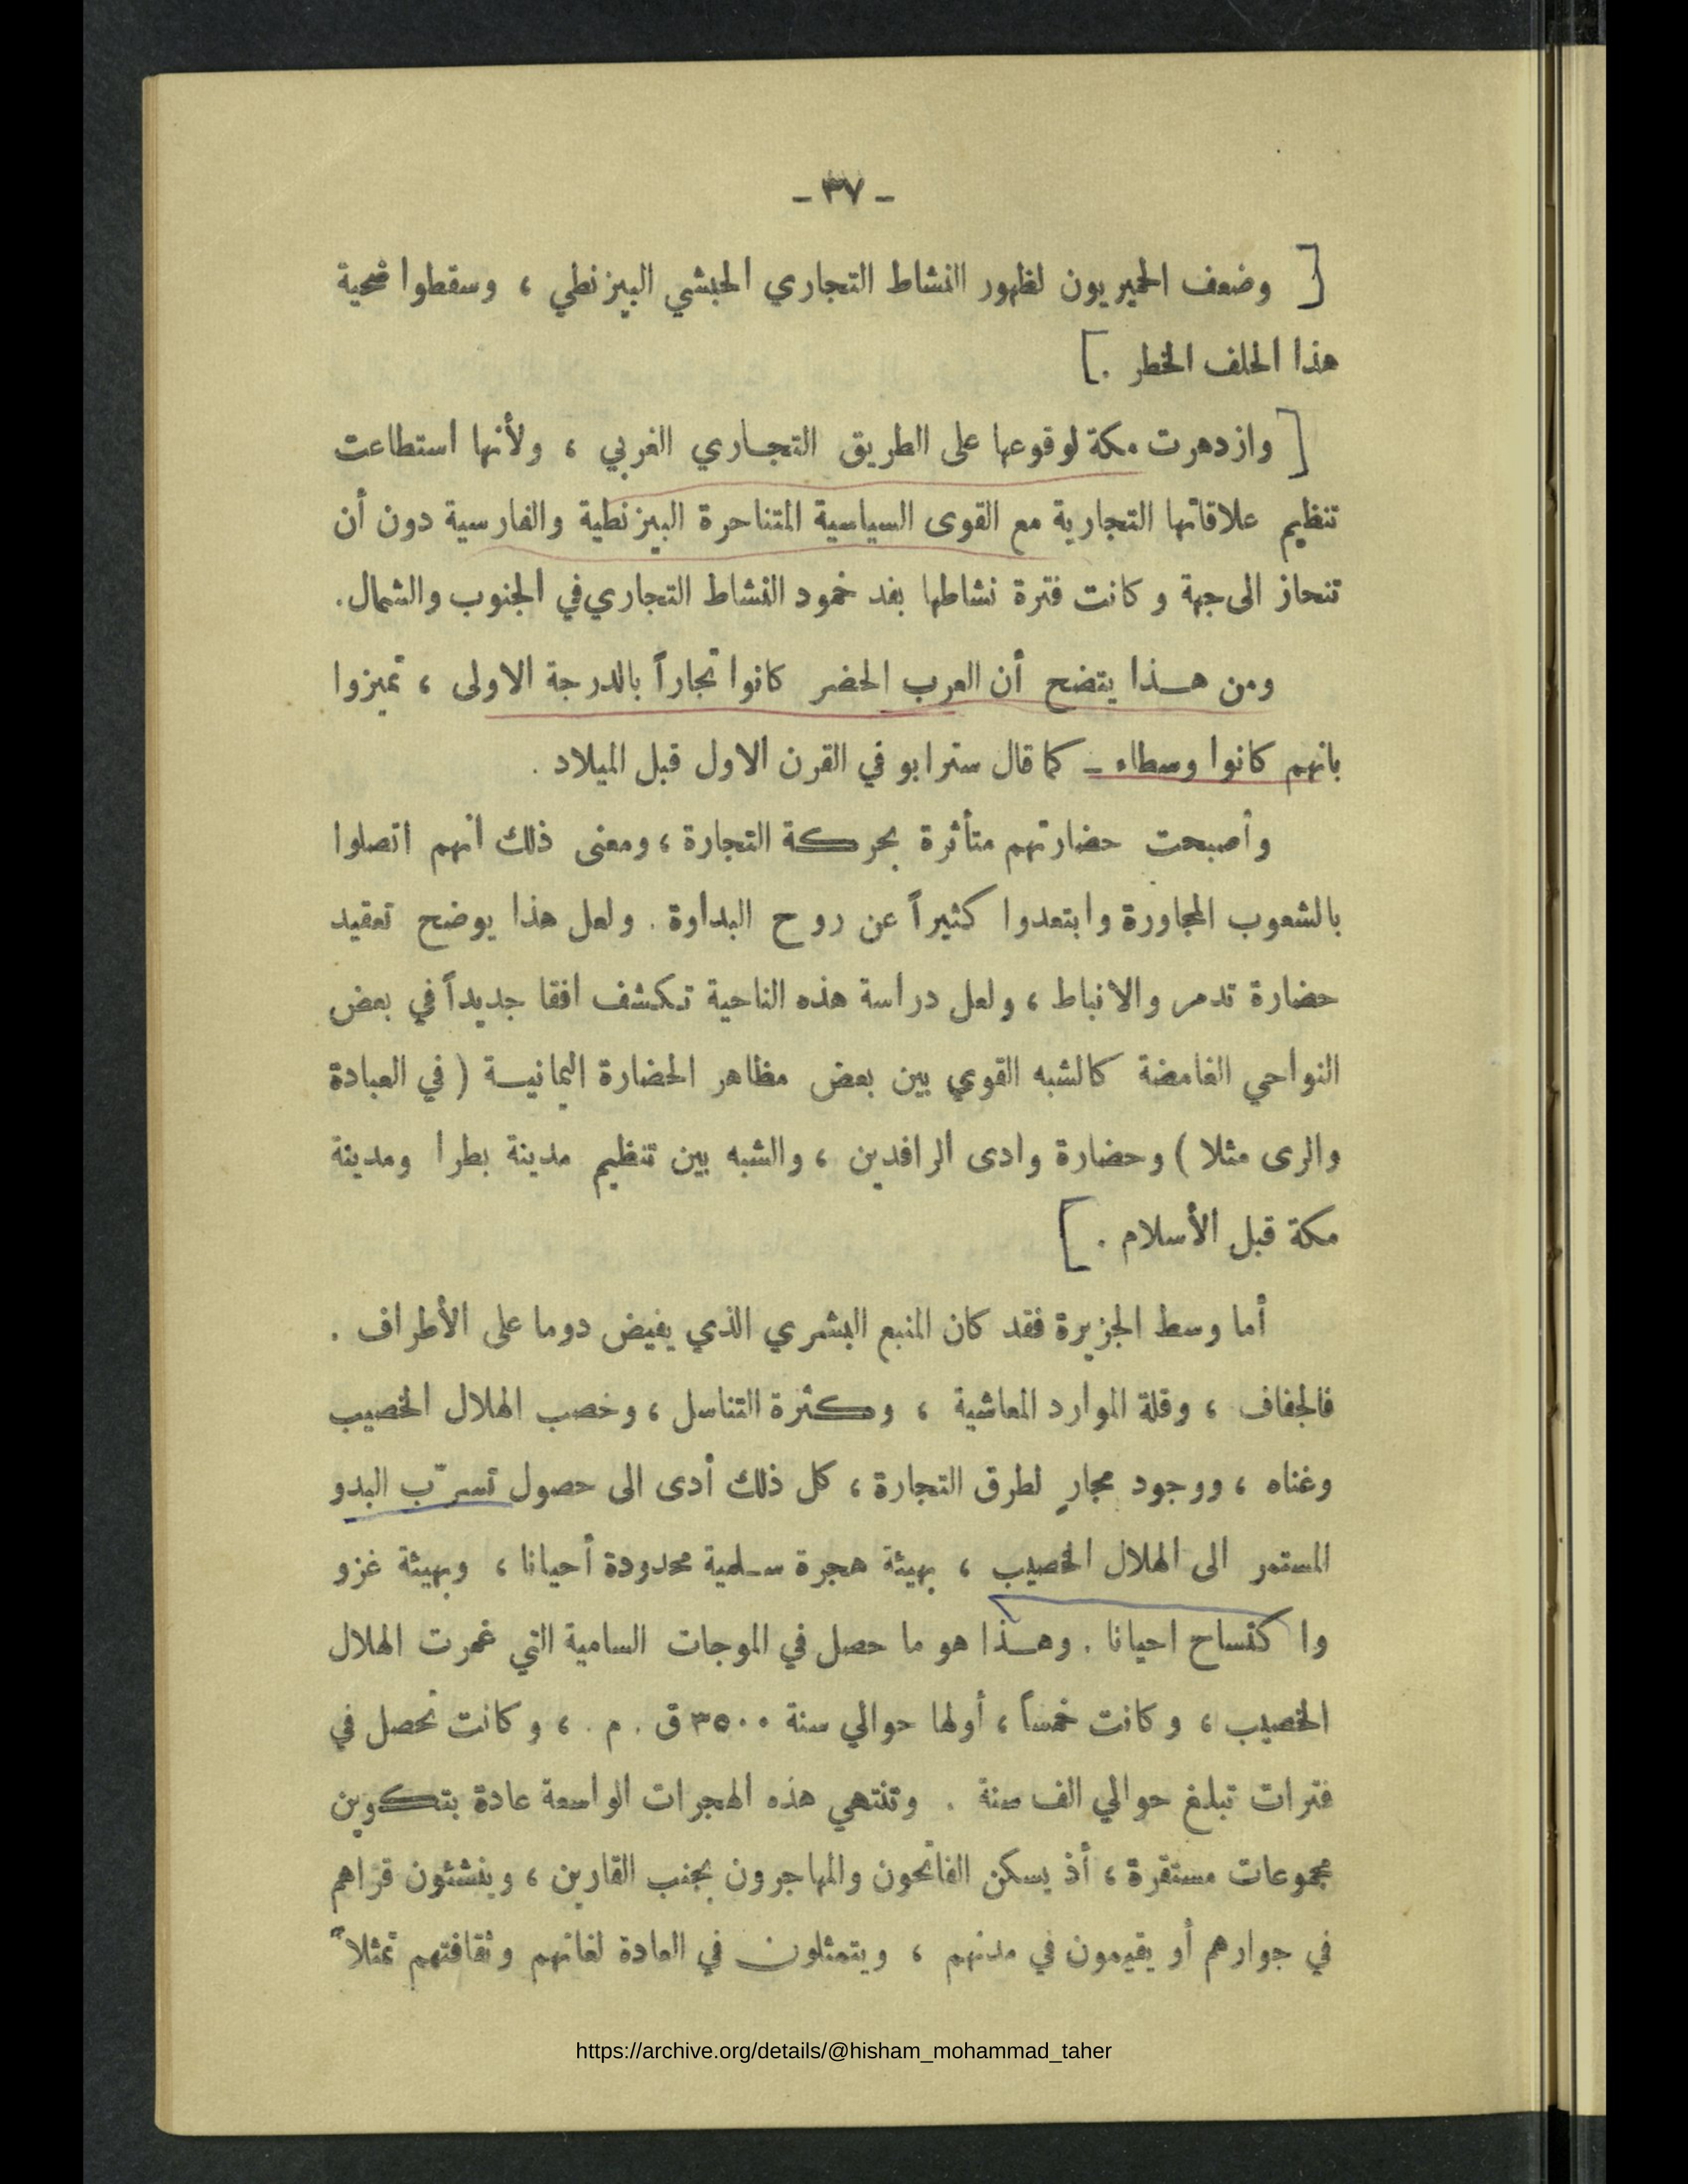 - ٣٧ -
[ وضعف الحميريون لظهور النشاط التجاري الحبشي البيزنطي ، وسقطوا ضحية
هذا الحلف الخطر .]
[ وازدهرت مكة لوقوعها على الطريق التجاري الغربي ، ولأنها استطاعت
تنظيم علاقاتها التجارية مع القوى السياسية المتناحرة البيزنطية والفارسية دون أن
تنحاز الى جهة وكانت فترة نشاطها بعد خمود النشاط التجاري في الجنوب والشمال.
ومن هذا يتضح أن العرب الحضر كانوا تجاراً بالدرجة الاولى ، تميزوا
بانهم كانوا وسطاء - كما قال سترابو في القرن الاول قبل الميلاد .
وأصبحت حضارتهم متأثرة بحركة التجارة ، ومعنى ذلك انهم اتصلوا
بالشعوب المجاورة وابتعدوا كثيراً عن روح البداوة . ولعل هذا يوضح تعقيد
حضارة تدمر والانباط ، ولعل دراسة هذه الناحية تكشف افقا جديداً في بعض
النواحي الغامضة كالشبه القوي بين بعض مظاهر الحضارة اليمانية ( في العبادة
والرى مثلا ) وحضارة وادى الرافدين ، والشبه بين تنظيم مدينة بطرا ومدينة
مكة قبل الأسلام .]
أما وسط الجزيرة فقد كان المنبع البشري الذي يفيض دوما على الأطراف .
فالجفاف ، وقلة الموارد المعاشية ، وكثرة التناسل ، وخصب الهلال الخصيب
وغناه ، ووجود مجارٍ لطرق التجارة ، كل ذلك أدى الى حصول تسرّب البدو
المستمر الى الهلال الخصيب ، بهيئة هجرة سلمية محدودة أحيانا ، وبهيئة غزو
واكتساح احيانا . وهذا هو ما حصل في الموجات السامية التي غمرت الهلال
الخصيب ، وكانت خمساً ، أولها حوالي سنة ٣٥٠٠ ق . م . ، وكانت تحصل في
فترات تبلغ حوالي الف سنة . وتنتهي هذه الهجرات الواسعة عادة بتكوين
مجموعات مستقرة ، أذ يسكن الفاتحون والمهاجرون بجنب القارين ، وينشئون قراهم
في جوارهم أو يقيمون في مدنهم ، ويتمثلون في العادة لغاتهم وثقافتهم تمثلاً
https://archive.org/details/@hisham_mohammad_taher